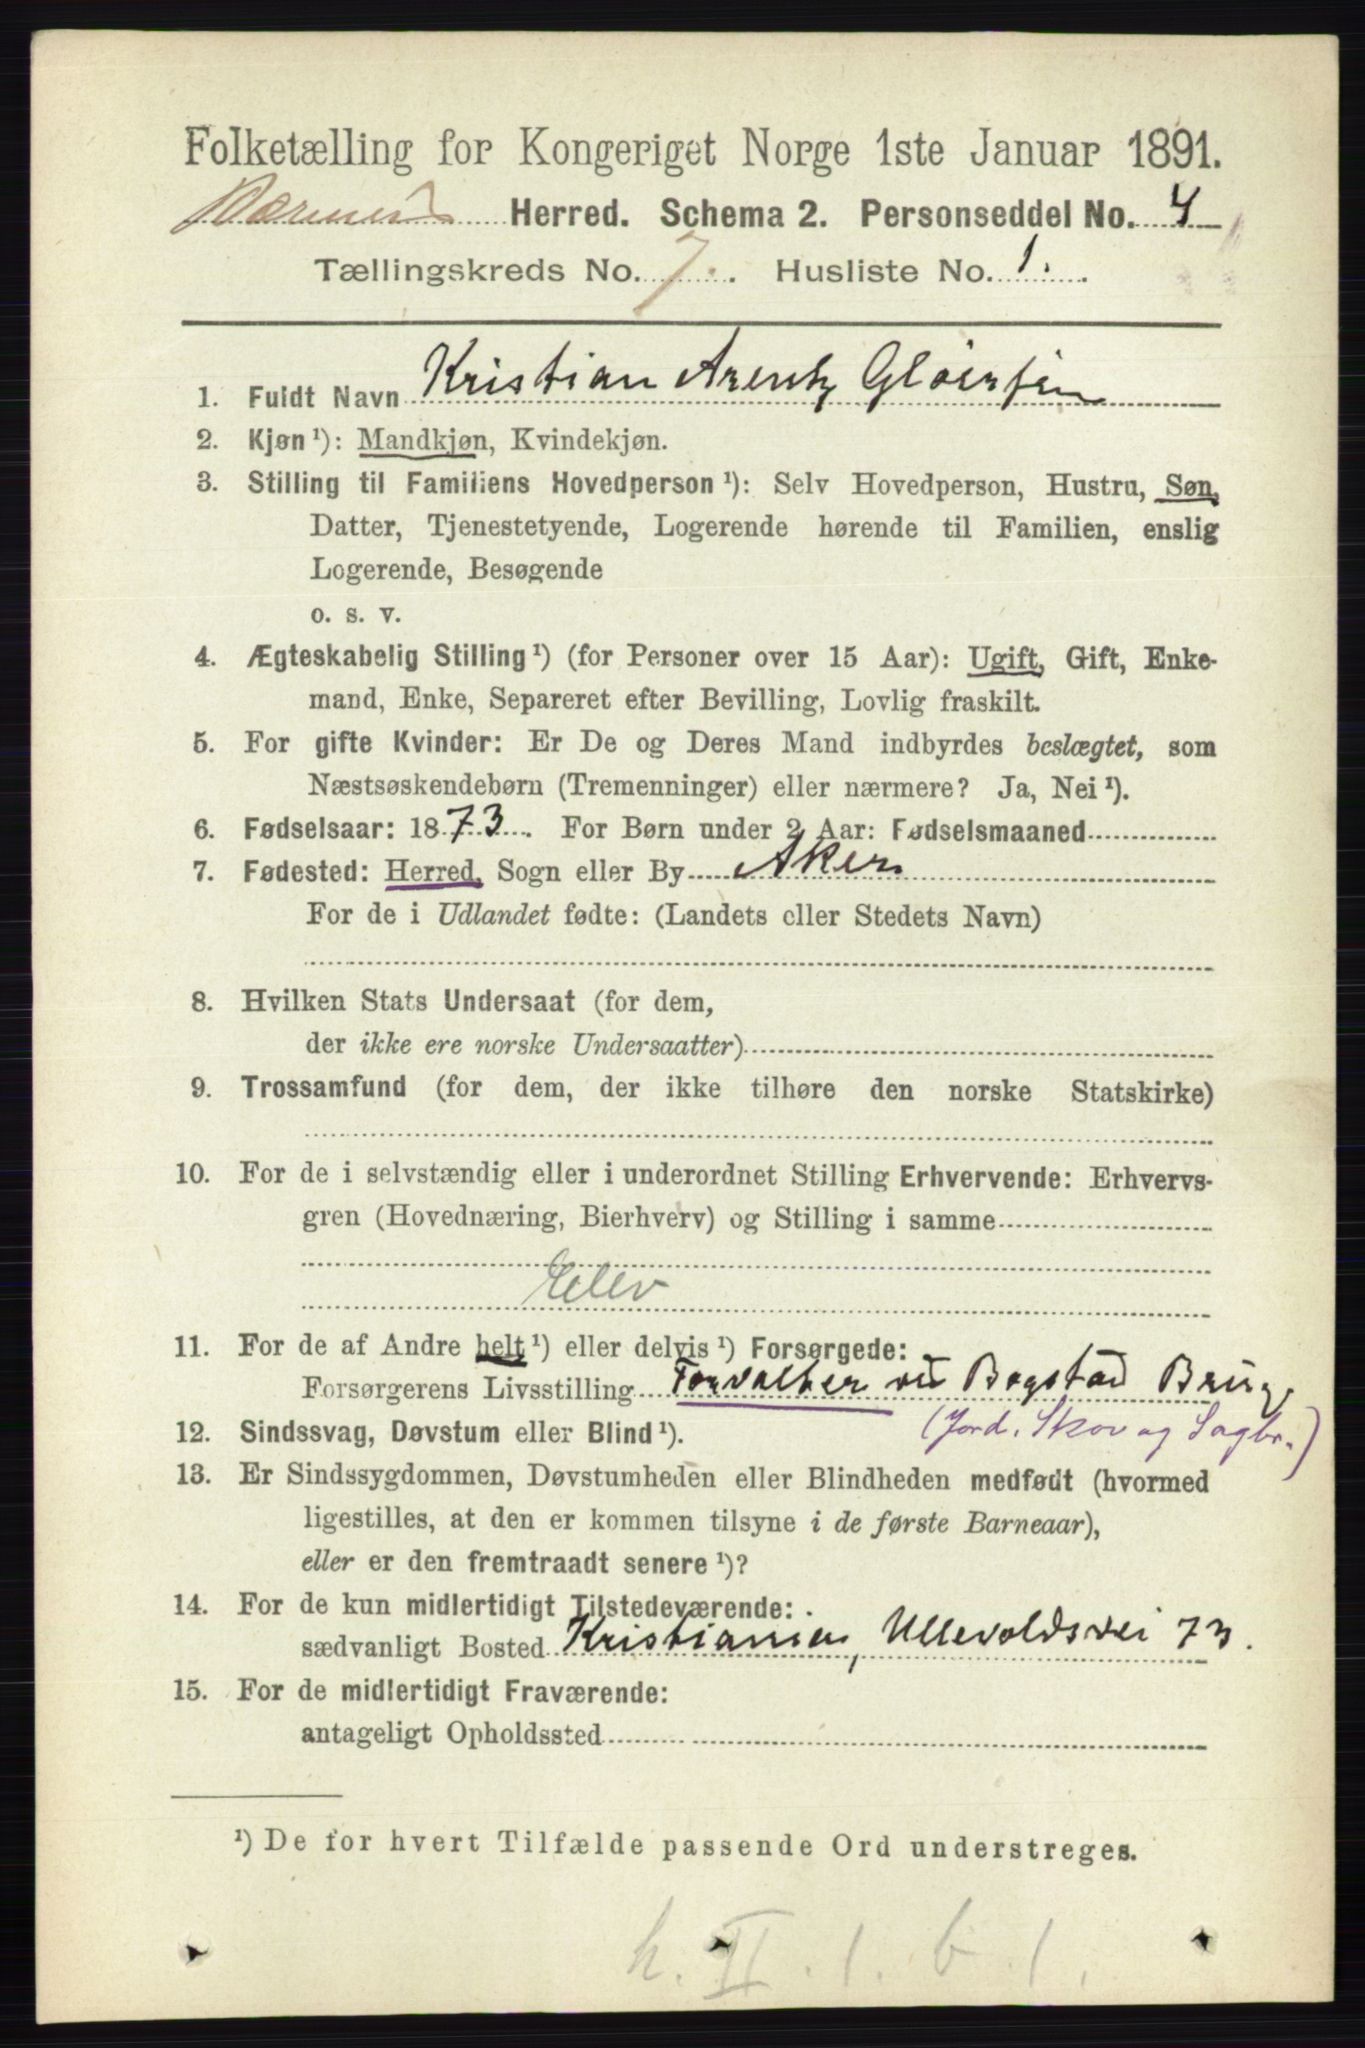 Folketælling for Kongeriget Norge 1ste Januar 1891.
Bærums Herred. Schema 2. Personseddel No. 4
Tællingskreds No. 7. Husliste No. 1.
1. Fuldt Navn Kristian Arentz Gløersen
2. Kjøn ¹): Mandkjøn, Kvindekjøn.
3. Stilling til Familiens Hovedperson ¹): Selv Hovedperson, Hustru, Søn,
Datter, Tjenestetyende, Logerende hørende til Familien, enslig
Logerende, Besøgende
o. s. v.
4. Ægteskabelig Stilling ¹) (for Personer over 15 Aar): Ugift, Gift, Enke-
mand, Enke, Separeret efter Bevilling, Lovlig fraskilt.
5. For gifte Kvinder: Er De og Deres Mand indbyrdes beslægtet, som
Næstsøskendebørn (Tremenninger) eller nærmere? Ja, Nei ¹).
6. Fødselsaar: 1873. For Børn under 2 Aar: Fødselsmaaned
7. Fødested: Herred, Sogn eller By Aker
For de i Udlandet fødte: (Landets eller Stedets Navn)
8. Hvilken Stats Undersaat (for dem,
der ikke ere norske Undersaatter)
9. Trossamfund (for dem, der ikke tilhøre den norske Statskirke)
10. For de i selvstændig eller i underordnet Stilling Erhvervende: Erhvervs-
gren (Hovednæring, Bierhverv) og Stilling i samme
Elev
11. For de af Andre helt ¹) eller delvis ¹) Forsørgede:
Forsørgerens Livsstilling Forvalter ved Bogstad Brug.
(Jord, Skov og Sagbr.)
12. Sindssvag, Døvstum eller Blind ¹).
13. Er Sindssygdommen, Døvstumheden eller Blindheden medfødt (hvormed
ligestilles, at den er kommen tilsyne i de første Barneaar),
eller er den fremtraadt senere ¹)?
14. For de kun midlertidigt Tilstedeværende:
sædvanligt Bosted Kristiania, Ullevoldsvei 73.
15. For de midlertidigt Fraværende:
antageligt Opholdssted
¹) De for hvert Tilfælde passende Ord understreges.
h. II. 1. b. 1.